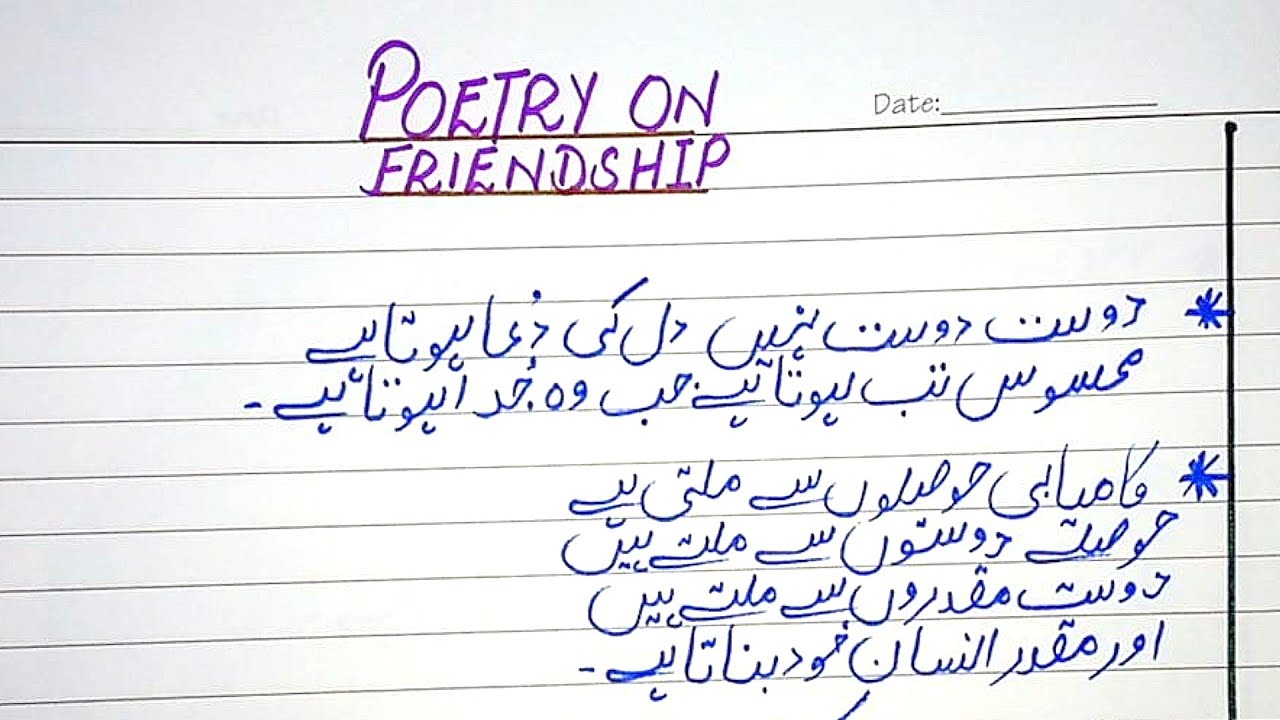 POETRY ON
FRIENDSHIP
Date:
* دوست دوست نہیں دل کی دُعا ہوتا ہے
محسوس تب ہوتا ہے جب وہ جُدا ہوتا ہے۔
* کامیابی حوصلوں سے ملتی ہے
حوصلے دوستوں سے ملتے ہیں
دوست مقدروں سے ملتے ہیں
اور مقدر انسان خود بناتا ہے۔